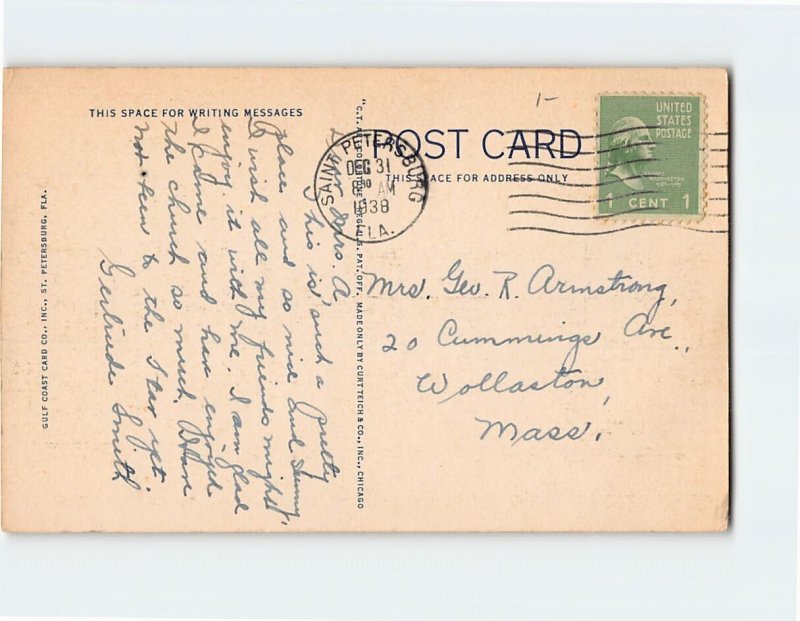 THIS SPACE FOR WRITING MESSAGES
POST CARD
THIS SPACE FOR ADDRESS ONLY
1-
UNITED
STATES
POSTAGE
GEORGE
WASHINGTON
1789-1797
1 CENT 1
SAINT PETERSBURG
DEC 31
AM
1938
FLA.
Dear Mrs. A.
This is such a pretty
place and so nice and sunny,
I wish all my friends might
enjoy it with me. I am glad
I came and have enjoyed
the church so much. Have
not been to the Star yet.
Gertrude Smith
Mrs. Geo. R. Armstrong,
20 Cummings Ave.,
Wollaston,
Mass.
GULF COAST CARD CO., INC., ST. PETERSBURG, FLA.
"C.T. ART-COLORTONE" REG. U.S. PAT. OFF. MADE ONLY BY CURT TEICH & CO., INC., CHICAGO